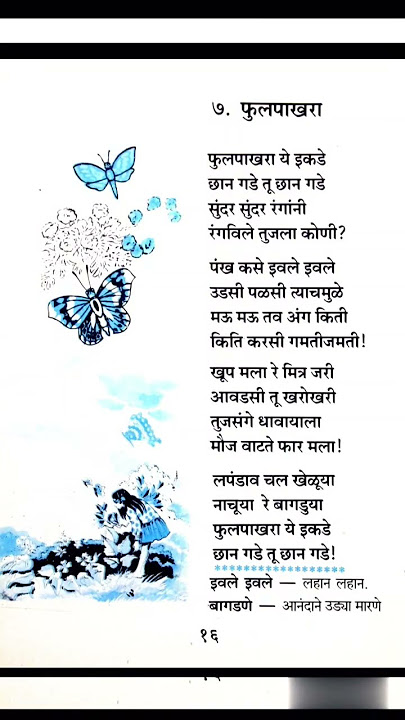 ७. फुलपाखरा
फुलपाखरा ये इकडे
छान गडे तू छान गडे
सुंदर सुंदर रंगांनी
रंगविले तुजला कोणी?
पंख कसे इवले इवले
उडसी पळसी त्याचमुळे
मऊ मऊ तव अंग किती
किति करसी गमतीजमती!
खूप मला रे मित्र जरी
आवडसी तू खरोखरी
तुजसंगे धावायाला
मौज वाटते फार मला!
लपंडाव चल खेळूया
नाचूया रे बागडुया
फुलपाखरा ये इकडे
छान गडे तू छान गडे!
******************
इवले इवले — लहान लहान.
बागडणे — आनंदाने उड्या मारणे
१६